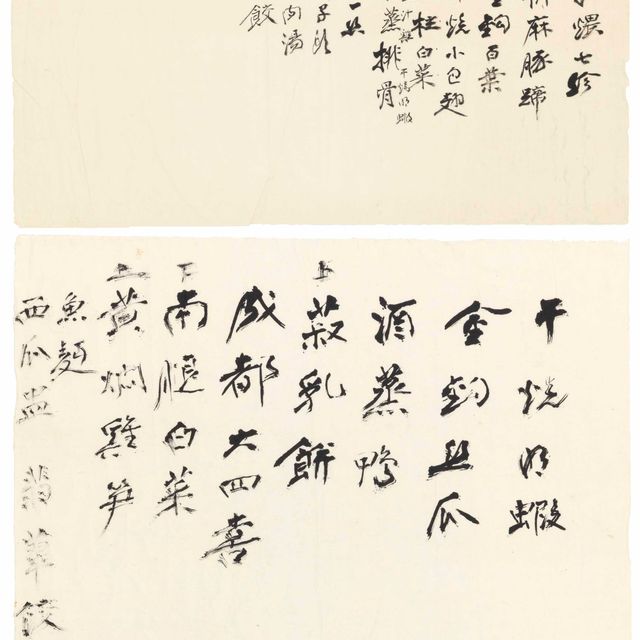 煨七珍
麻豚蹄
鉤百葉
燒小包翅
柱白菜
干燒明蝦
蒸排骨
一品
子
肉湯
餃
干燒明蝦
金鉤丝瓜
酒蒸鴨
上
菽乳餅
成都大四喜
下
南腿白菜
上
黄燜雞笋
魚麵
西瓜盅 翡翠餃